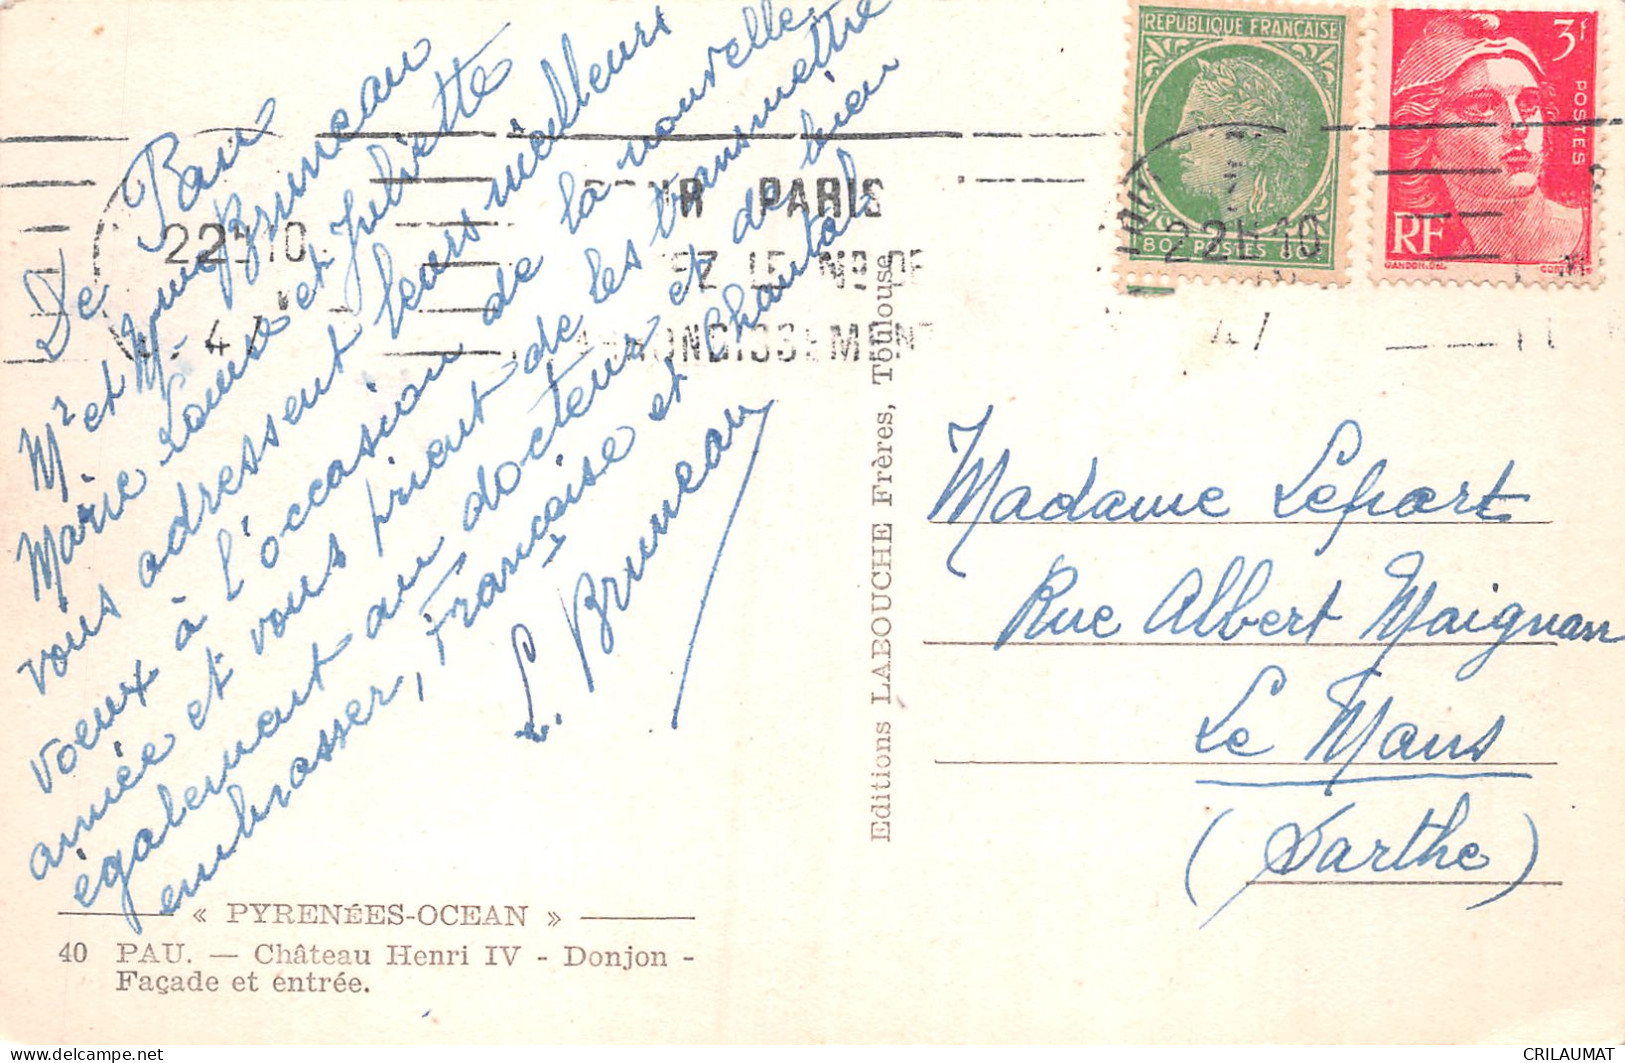 De Pau
Mr et Mme Bruneau
Marie Louise et Juliette
vous adressent leurs meilleurs
voeux à l'occasion de la nouvelle
année et vous prient de les transmettre
également au docteur et de bien
embrasser, Françoise et Chantal
L. Bruneau
« PYRENÉES-OCEAN »
40 PAU. — Château Henri IV - Donjon -
Façade et entrée.
Editions LABOUCHE Frères, Toulouse
REPUBLIQUE FRANÇAISE
80 POSTES 80
3F
POSTES
RF
GANDON
22H10
47
PARIS
LE No DE
22H10
Madame Lepart
Rue Albert Maignan
Le Mans
(Sarthe)
CRILAUMAT